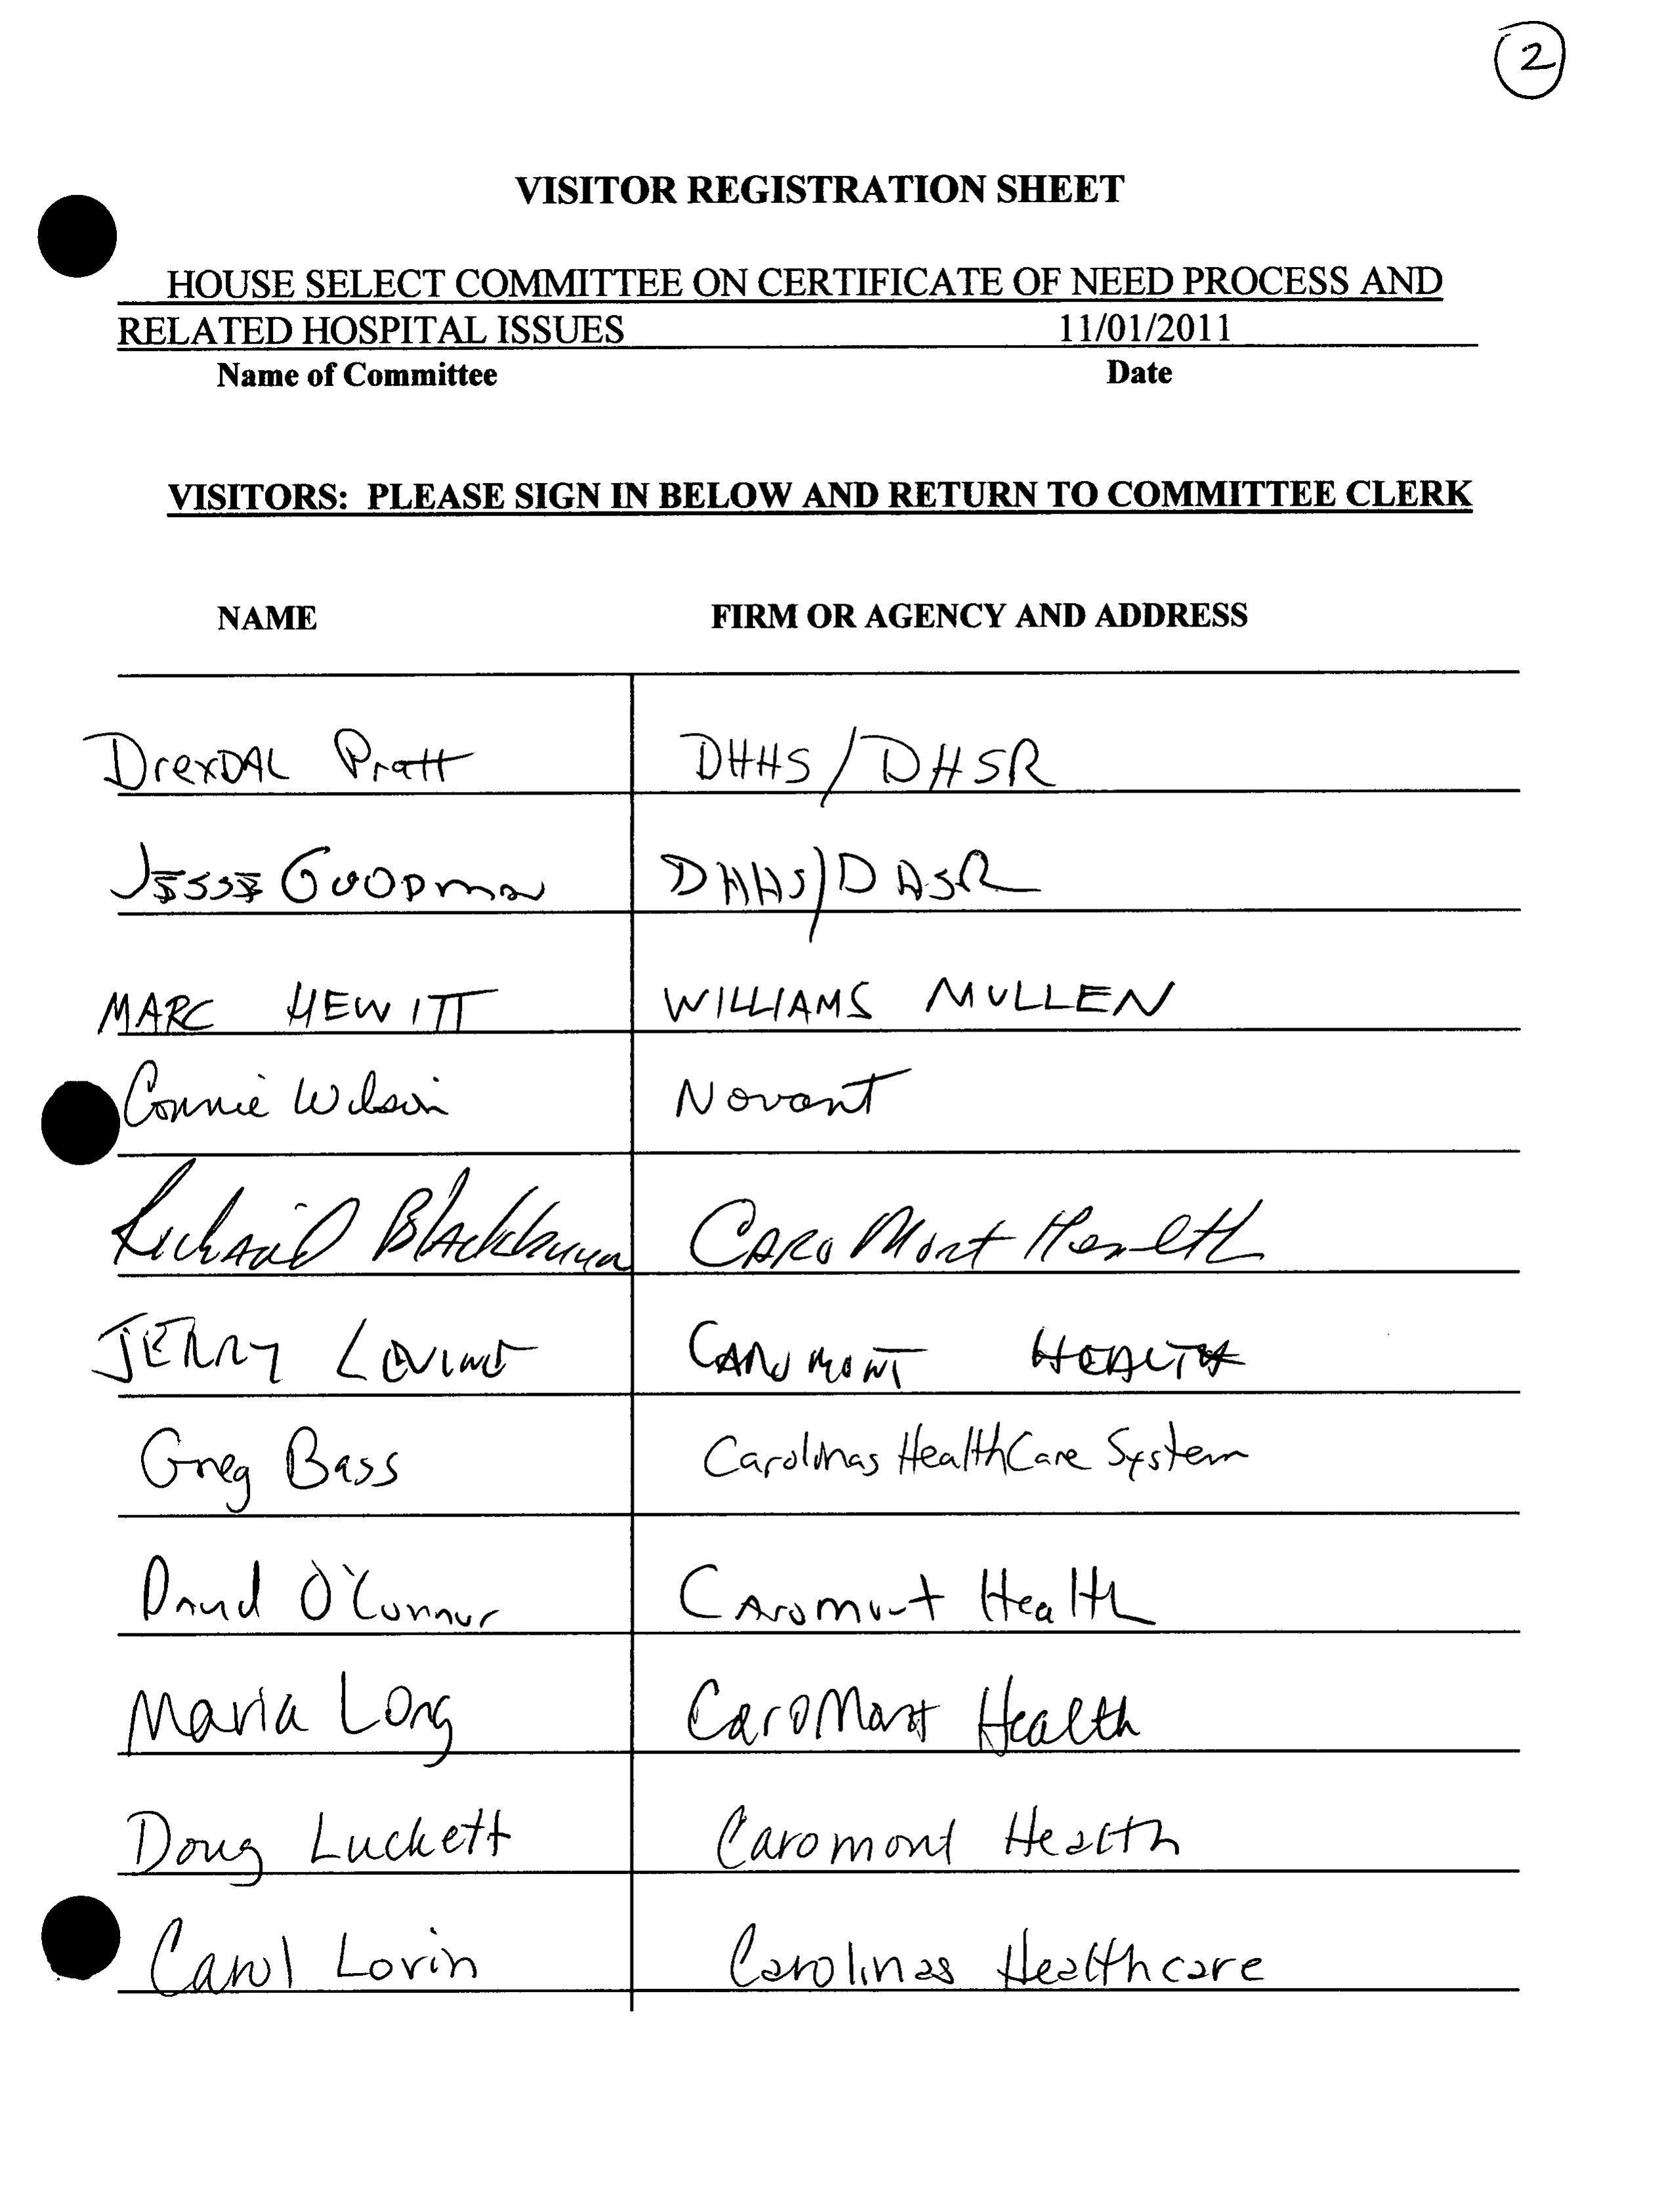 2
VISITOR REGISTRATION SHEET
HOUSE SELECT COMMITTEE ON CERTIFICATE OF NEED PROCESS AND
RELATED HOSPITAL ISSUES 11/01/2011
Name of Committee Date
VISITORS: PLEASE SIGN IN BELOW AND RETURN TO COMMITTEE CLERK
NAME FIRM OR AGENCY AND ADDRESS
DrexDAL Pratt DHHS/DHSR
JESSE GOODman DHHS/DHSR
MARC HEWITT WILLIAMS MULLEN
Connie Wilson Novant
Richard Blackburn CARO Mont Health
JERRY CAROMONT HEALTH
Greg Bass Carolinas HealthCare System
David O'Connor Caromont Health
Maria Long CaroMont Health
Doug Luckett Caromont Health
Carol Lovin Carolinas Healthcare